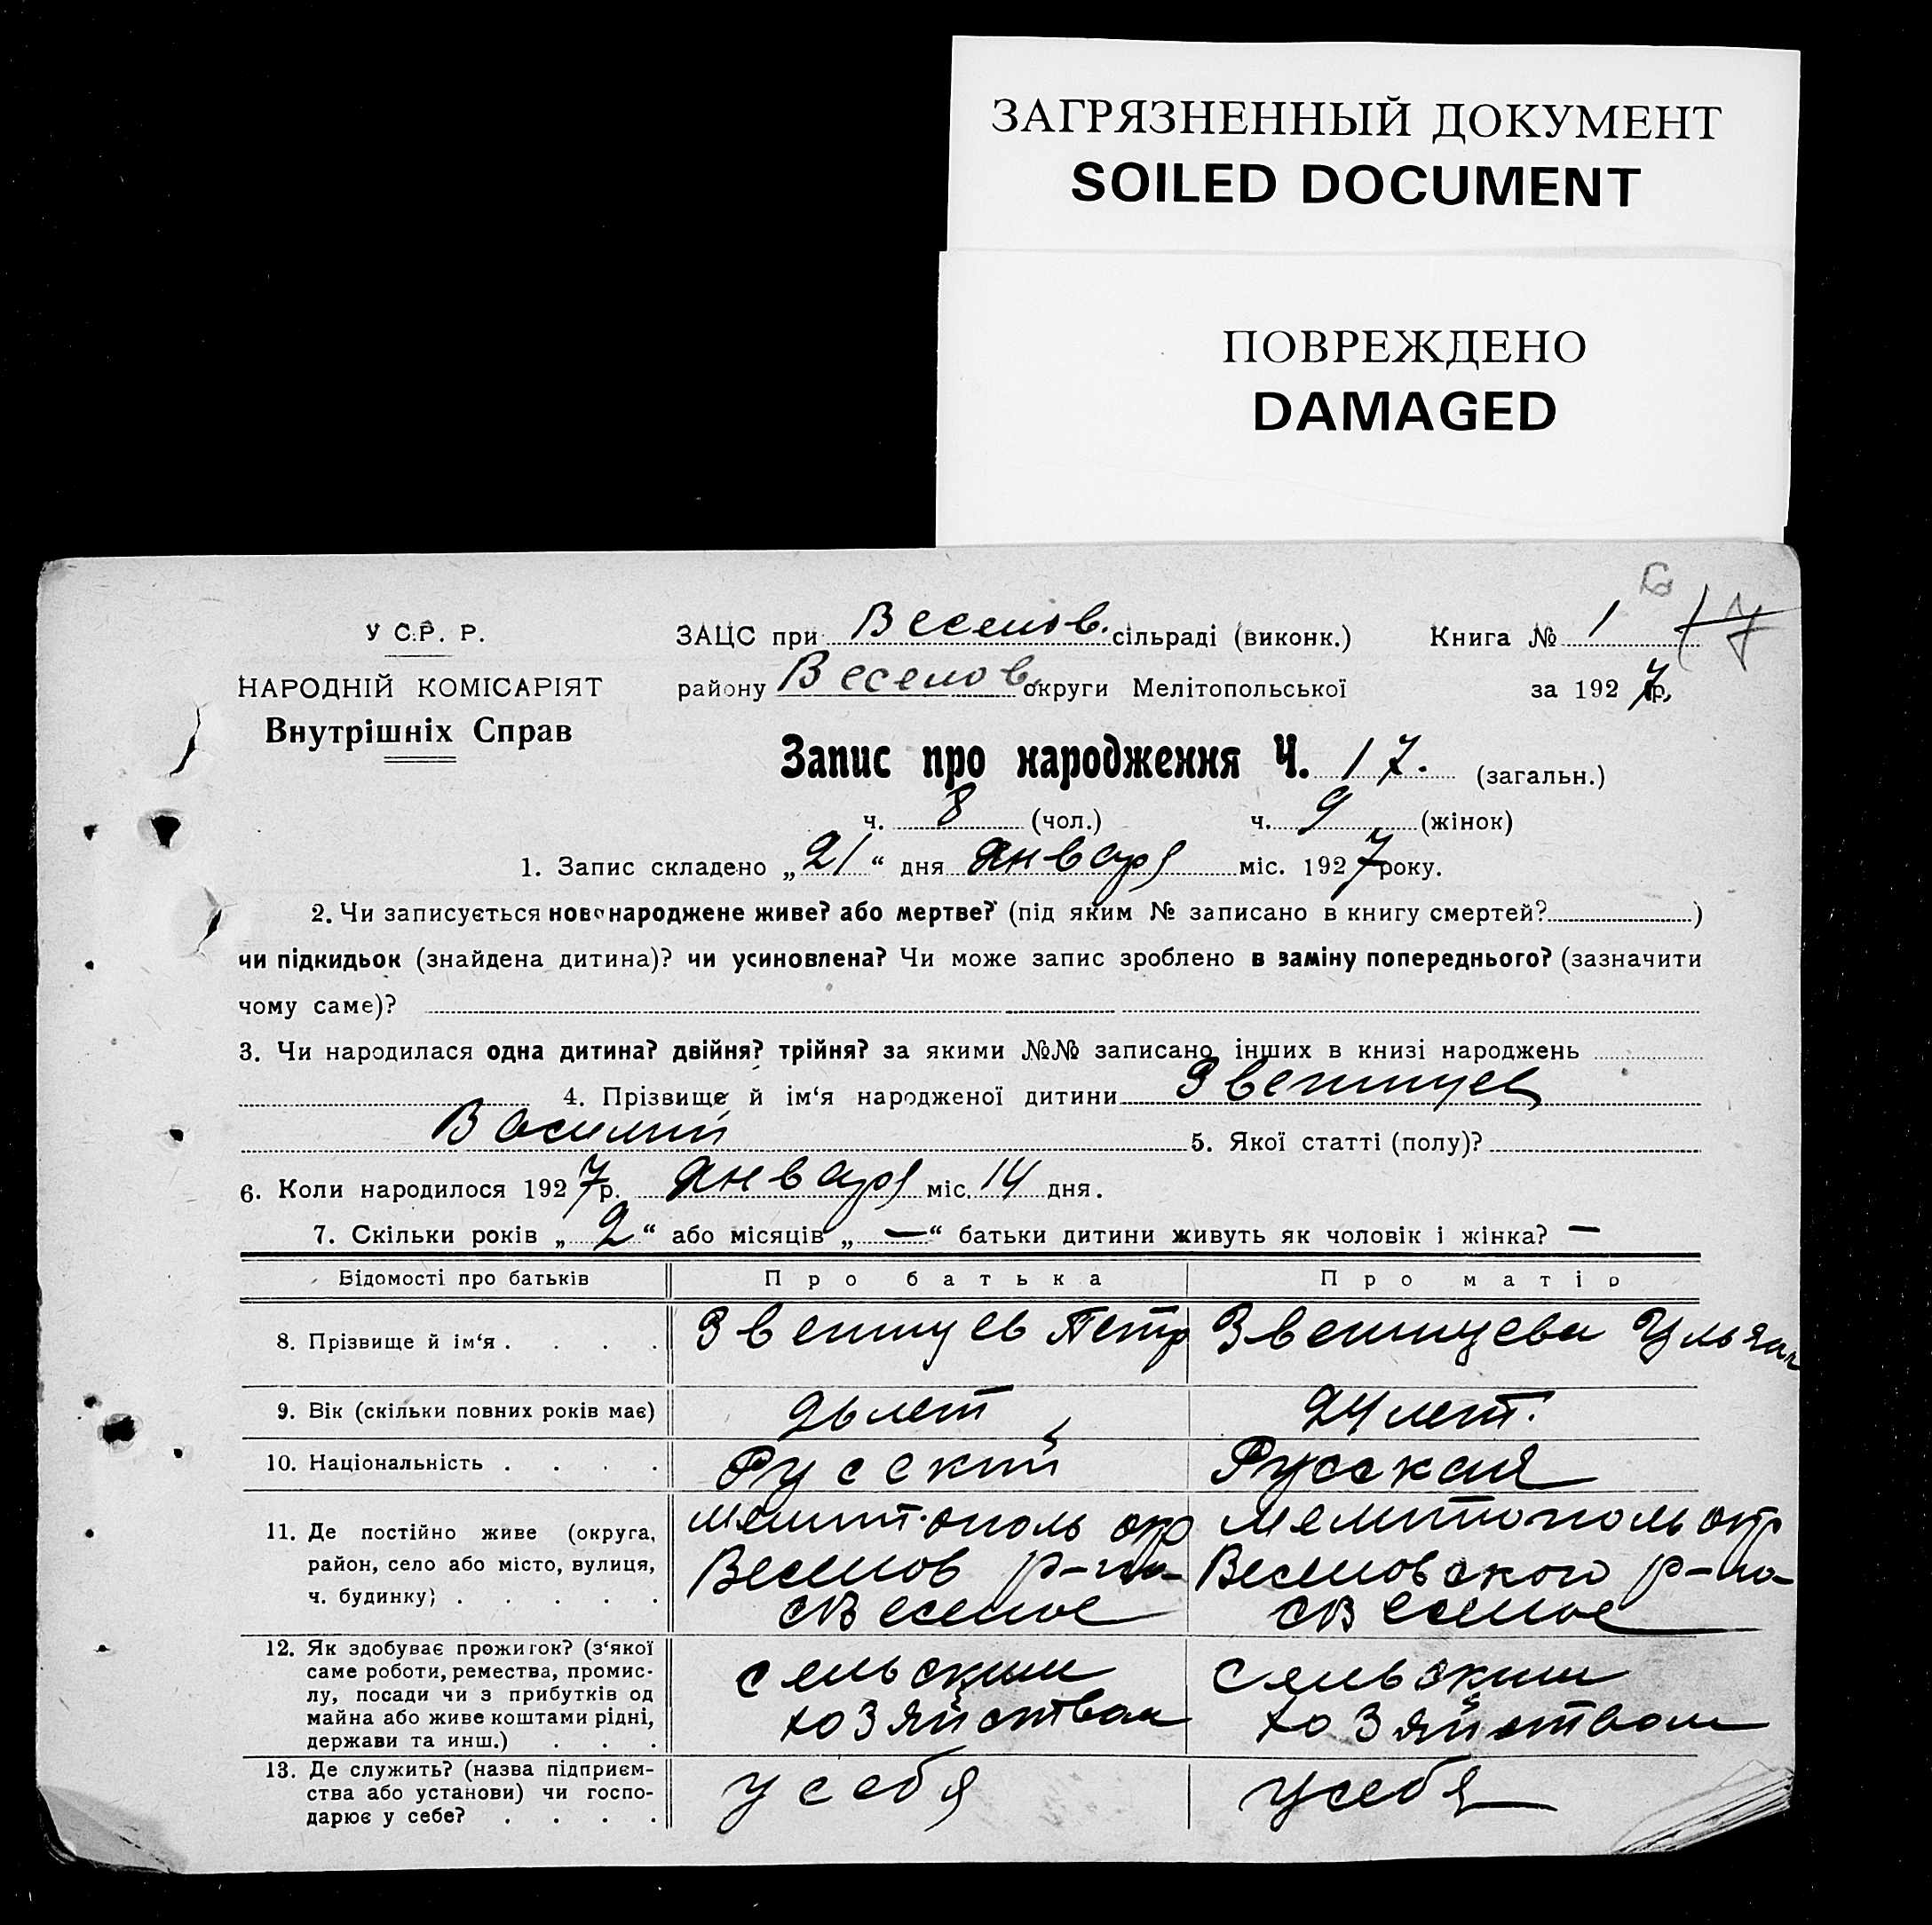 ЗАГРЯЗНЕННЫЙ ДОКУМЕНТ
SOILED DOCUMENT
ПОВРЕЖДЕНО
DAMAGED
У С.Р. Р.
НАРОДНІЙ КОМІСАРІЯТ
Внутрішніх Справ
ЗАЦС при Веселов. сільраді (виконк.) Книга № 1 17
району Веселов. округи Мелітопольської за 1927 р.
Запис про народження Ч. 17. (загальн.)
ч. 8 (чол.) ч. 9 (жінок)
1. Запис складено „21“ дня Января міс. 1927 року.
2. Чи записується новонароджене живе? або мертве? (під яким № записано в книгу смертей? )
чи підкидьок (знайдена дитина)? чи усиновлена? Чи може запис зроблено в заміну попереднього? (зазначити
чому саме)?
3. Чи народилася одна дитина? двійня? трійня? за якими №№ записано інших в книзі народжень
4. Прізвище й ім‘я народженої дитини
Василий 5. Якої статті (полу)?
6. Коли народилося 1927 р. Января міс. 14 дня.
7. Скільки років „2“ або місяців „—“ батьки дитини живуть як чоловік і жінка? —
Відомості про батьків Про батька Про матір
8. Прізвище й ім‘я . . . . Петр Ульяна
9. Вік (скільки повних років має) 26 лет 24 лет.
10. Національність . . . . Русский Русская
11. Де постійно живе (округа, район, село або місто, вулиця, ч. будинку) . . . . .
Мелитополь окр Мелитополь окр
Веселов р-на Веселовского р-на
с Веселое с Веселое
12. Як здобуває прожиток? (з‘якої саме роботи, ремества, промислу, посади чи з прибутків од майна або живе коштами рідні, держави та инш.) . . .
сельским сельским
хозяйством хозяйством
13. Де служить? (назва підприємства або установи) чи господарює у себе? . . . .
у себя у себя